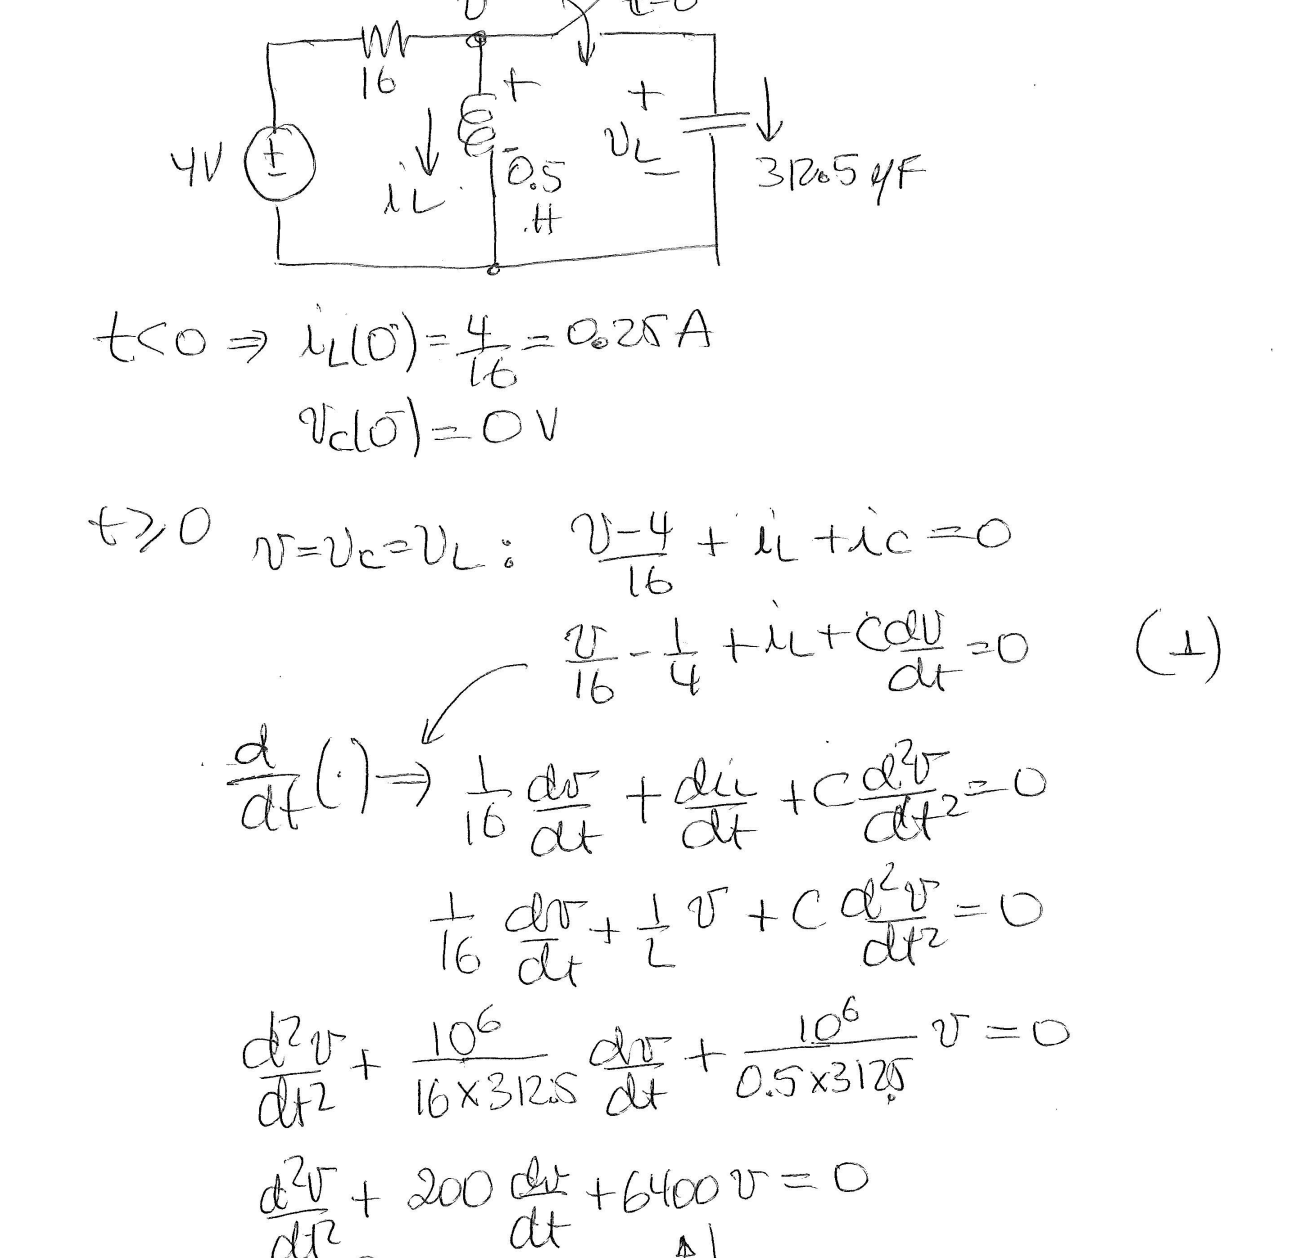 v t=0
16 + +
4V + - iL - 0.5 H vL - 312.5 μF
t<0 ⇒ iL(0⁻) = 4/16 = 0.25 A
vc(0⁻) = 0 V
t≥0 v=vc=vL: (v-4)/16 + iL + ic = 0
v/16 - 1/4 + iL + C dv/dt = 0 (1)
d/dt (·) ⇒ 1/16 dv/dt + diL/dt + C d²v/dt² = 0
1/16 dv/dt + 1/L v + C d²v/dt² = 0
d²v/dt² + 10⁶/(16×312.5) dv/dt + 10⁶/(0.5×312.5) v = 0
d²v/dt² + 200 dv/dt + 6400 v = 0